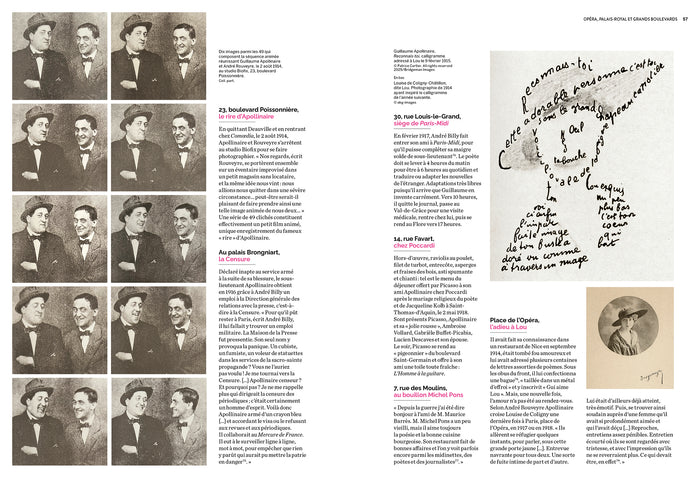 OPÉRA, PALAIS-ROYAL ET GRANDS BOULEVARDS 57
Dix images parmi les 49 qui
composent la séquence animée
réunissant Guillaume Apollinaire
et André Rouveyre, le 2 août 1914,
au studio Biofix, 23, boulevard
Poissonnière.
Coll. part.
23, boulevard Poissonnière,
le rire d'Apollinaire
En quittant Deauville et en rentrant
chez Comœdia, le 2 août 1914,
Apollinaire et Rouveyre s'arrêtent
au studio Biofix pour se faire
photographier. « Nos regards, écrit
Rouveyre, se portèrent ensemble
sur un éventaire improvisé dans
un petit magasin sans locataire,
et la même idée nous vint : nous
allions nous quitter dans une sévère
circonstance… peut-être serait-il
plaisant de faire prendre ainsi une
telle image animée de nous deux… »
Une série de 49 clichés constituent
effectivement un petit film animé,
unique enregistrement du fameux
« rire » d'Apollinaire.
Au palais Brongniart,
la Censure
Déclaré inapte au service armé
à la suite de sa blessure, le sous-
lieutenant Apollinaire obtient
en 1916 grâce à André Billy un
emploi à la Direction générale des
relations avec la presse, c'est-à-
dire à la Censure. « Pour qu'il pût
rester à Paris, écrit André Billy,
il lui fallait y trouver un emploi
militaire. La Maison de la Presse
fut pressentie. Son seul nom y
provoqua la panique. Un cubiste,
un fumiste, un voleur de statuettes
dans les services de la sacro-sainte
propagande ? Vous ne l'auriez
pas voulu ! Je me tournai vers la
Censure. […] Apollinaire censeur ?
Et pourquoi pas ? Je ne me rappelle
plus qui dirigeait la censure des
périodiques ; c'était certainement
un homme d'esprit. Voilà donc
Apollinaire armé d'un crayon bleu
[…] et accordant le visa ou le refusant
aux revues et aux périodiques.
Il collaborait au Mercure de France.
Il eut à le surveiller ligne à ligne,
mot à mot, pour empêcher que rien
y parût qui aurait pu mettre la patrie
en danger. »
Guillaume Apollinaire,
Reconnais-toi, calligramme
adressé à Lou le 9 février 1915.
© Patrice Cartier. All rights reserved
2025/Bridgeman Images
En bas
Louise de Coligny-Châtillon,
dite Lou. Photographie de 1914
ayant inspiré le calligramme
de l'année suivante.
© akg-images
30, rue Louis-le-Grand,
siège de Paris-Midi
En février 1917, André Billy fait
entrer son ami à Paris-Midi, pour
qu'il puisse compléter sa maigre
solde de sous-lieutenant. Le poète
doit se lever à 4 heures du matin
pour être à 6 heures au quotidien et
traduire ou adapter les nouvelles
de l'étranger. Adaptations très libres
puisqu'il arrive que Guillaume en
invente carrément. Vers 10 heures,
il quitte le journal, passe au
Val-de-Grâce pour une visite
médicale, rentre chez lui, puis se
rend au Flore vers 17 heures.
14, rue Favart,
chez Poccardi
Hors-d'œuvre, raviolis au poulet,
filet de turbot, entrecôte, asperges
et fraises des bois, asti spumante
et chianti : tel est le menu du
déjeuner offert par Picasso à son
ami Apollinaire chez Poccardi
après le mariage religieux du poète
et de Jacqueline Kolb à Saint-
Thomas-d'Aquin, le 2 mai 1918.
Sont présents Picasso, Apollinaire
et sa « jolie rousse », Ambroise
Vollard, Gabriële Buffet-Picabia,
Lucien Descaves et son épouse.
Le soir, Picasso se rend au
« pigeonnier » du boulevard
Saint-Germain et offre à son
ami une toile toute fraîche :
L'Homme à la guitare.
7, rue des Moulins,
au bouillon Michel Pons
« Depuis la guerre j'ai été dire
bonjour à l'ami de M. Maurice
Barrès. M. Michel Pons a un peu
vieilli, mais il aime toujours
la poésie et la bonne cuisine
bourgeoise. Son restaurant fait de
bonnes affaires et l'on y voit parfois
encore parmi les midinettes, des
poètes et des journalistes. »
Reconnais-toi
Cette adorable personne c'est toi
sous le grand chapeau canotier
Œil
Nez
la bouche
Voici l'ovale de ta figure
ton cou exquis
Voici enfin
l'imparfaite image
de ton buste
adoré vu comme
à travers un nuage
un peu
plus bas
c'est ton
cœur
qui
bat
Place de l'Opéra,
l'adieu à Lou
Il avait fait sa connaissance dans
un restaurant de Nice en septembre
1914, était tombé fou amoureux et
lui avait adressé plusieurs centaines
de lettres assorties de poèmes. Sous
les obus du front, il lui confectionna
une bague, « taillée dans un métal
d'effroi » et y inscrivit « Gui aime
Lou ». Mais, une nouvelle fois,
l'amour n'a pas été au rendez-vous.
Selon André Rouveyre Apollinaire
croise Louise de Coligny une
dernière fois à Paris, place de
l'Opéra, en 1917 ou en 1918. « Ils
allèrent se réfugier quelques
instants, pour parler, sous cette
grande porte jaune […]. Entrevue
navrante pour tous deux. Une sorte
de fuite intime de part et d'autre.
Lui était d'ailleurs déjà atteint,
très émotif. Puis, se trouver ainsi
soudain auprès d'une femme qu'il
avait si profondément aimée et
qui l'avait déçu […] Reproches,
entretiens assez pénibles. Entretien
écourté où ils se sont regardés avec
tristesse, et avec l'impression qu'ils
ne se reverraient plus. Ce qui devait
être, en effet. »